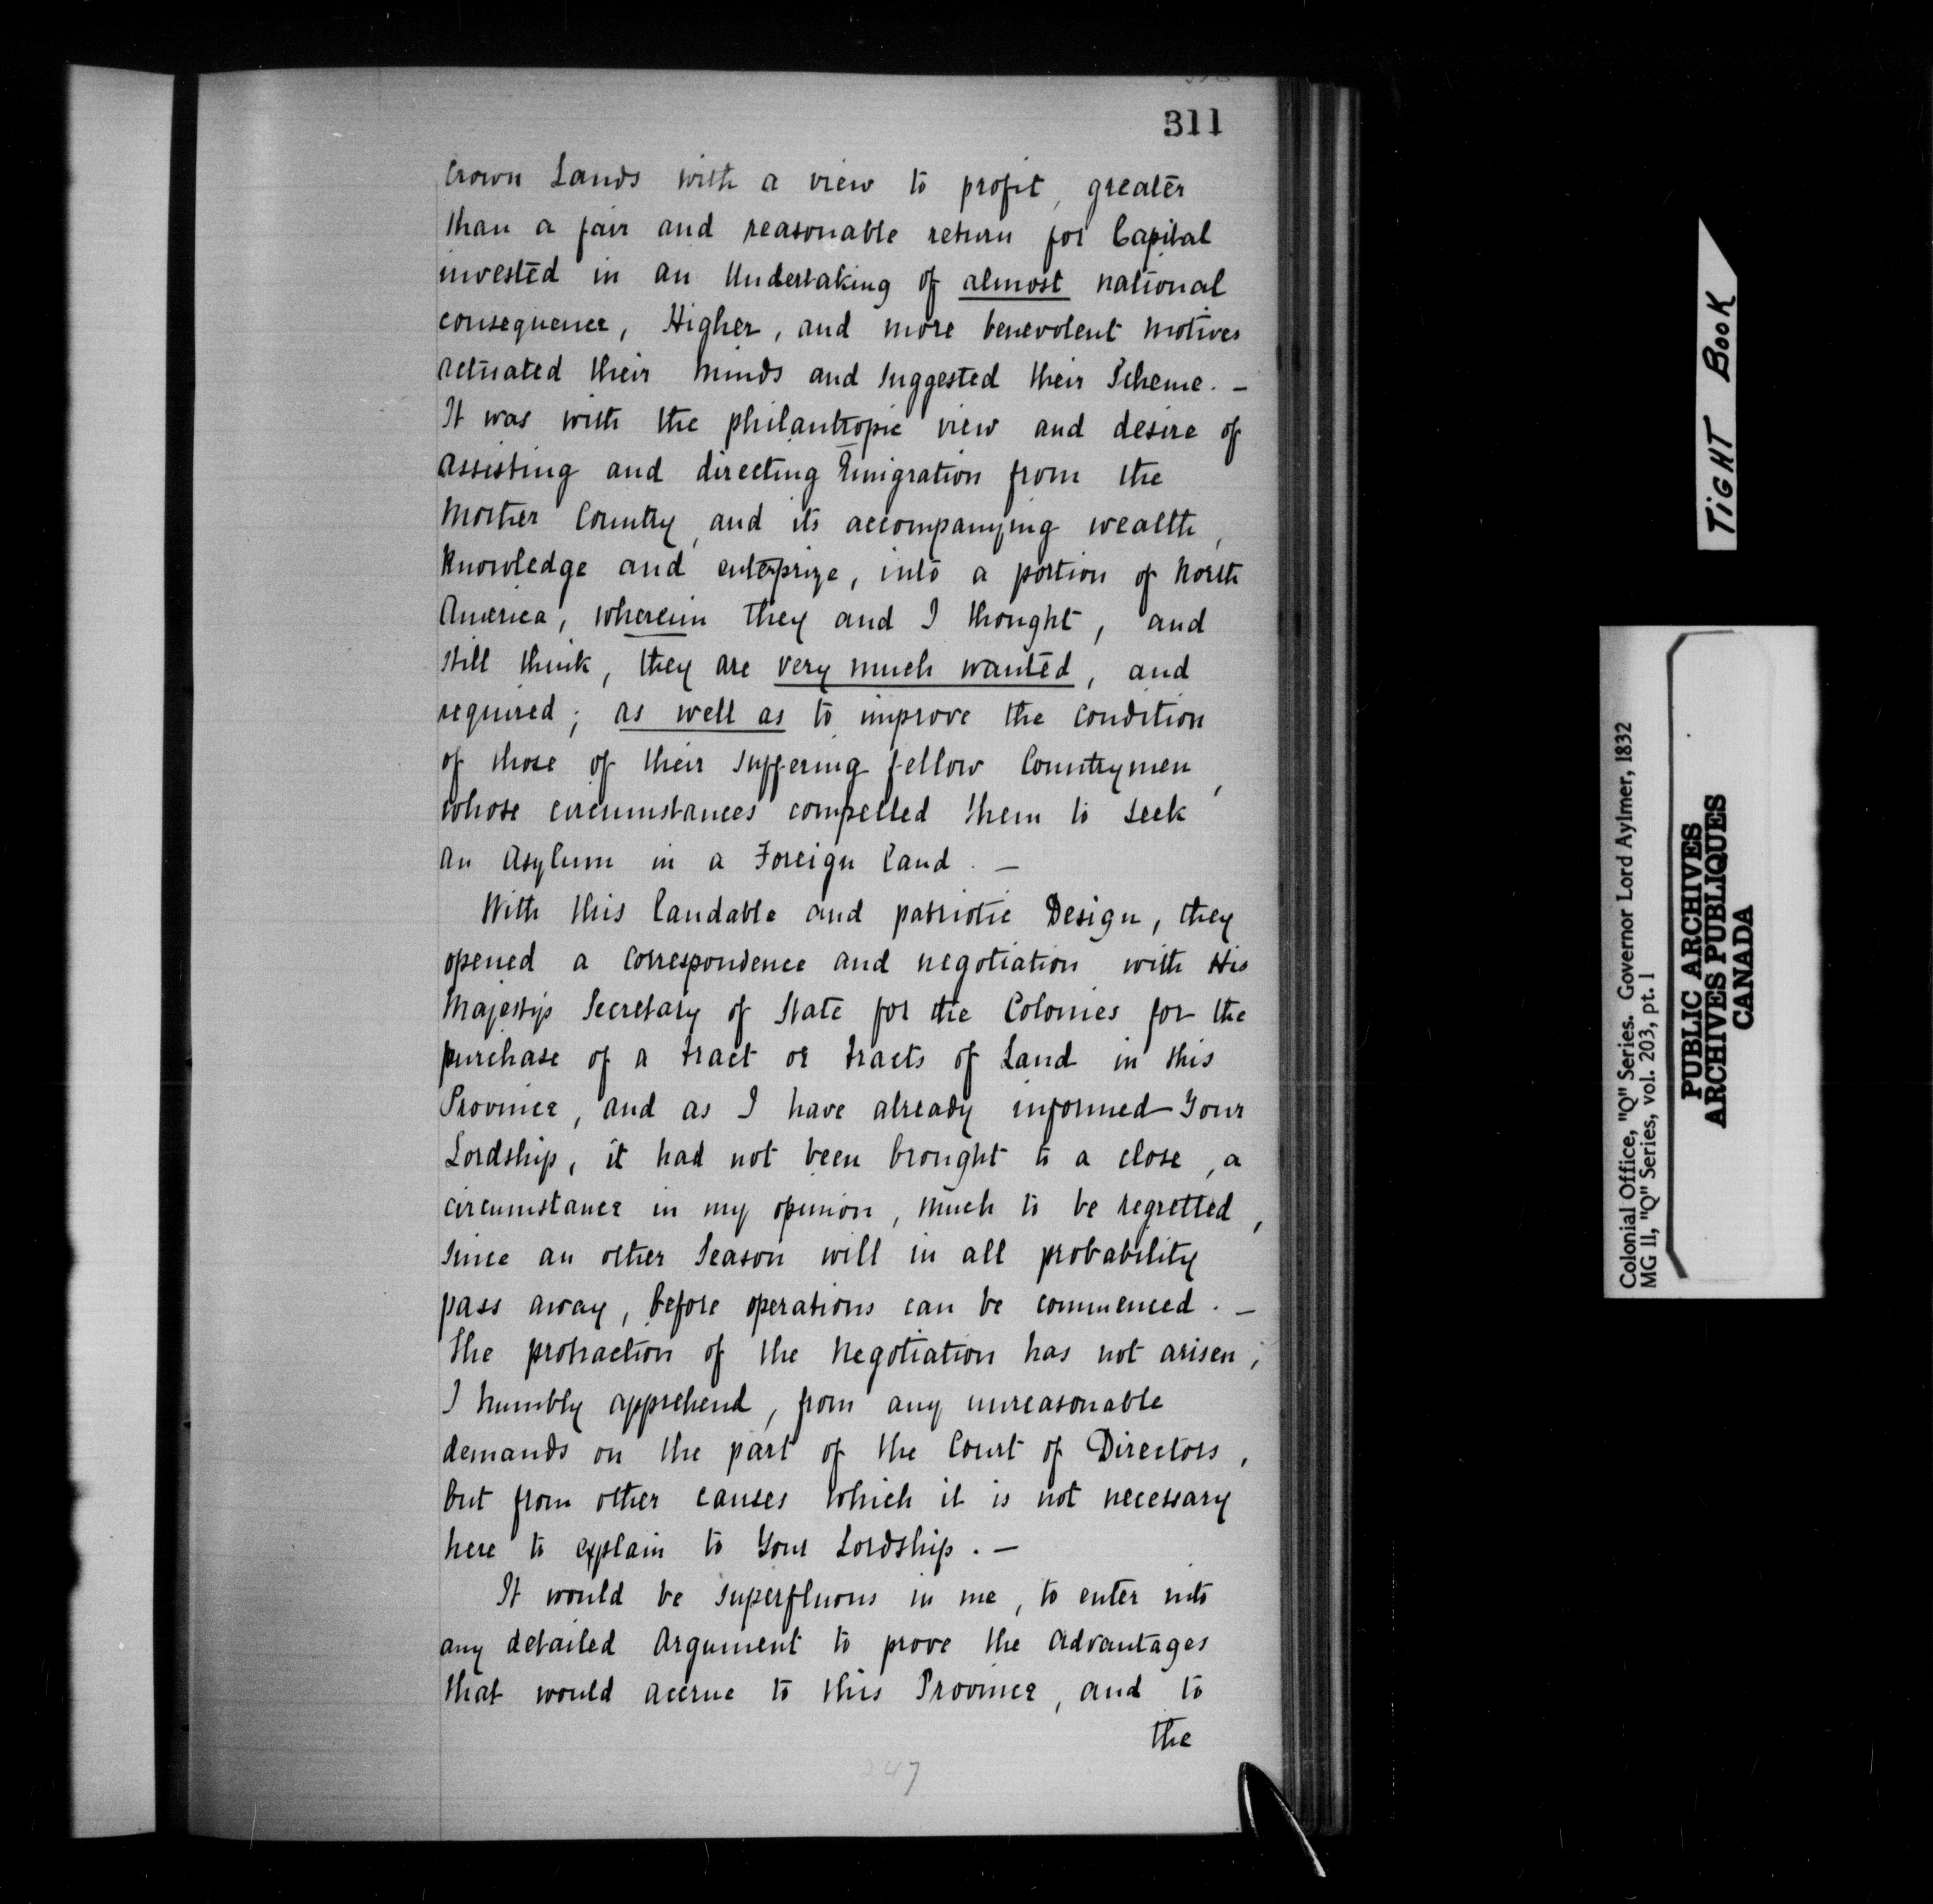 311
Crown Lands with a view to profit, greater
than a fair and reasonable return for Capital
invested in an Undertaking of almost national
consequence, Higher, and more benevolent motives
actuated their minds and suggested their Scheme. —
It was with the philantropic view and desire of
assisting and directing Emigration from the
Mother Country, and its accompanying wealth,
knowledge and enterprize, into a portion of North
America, wherein they and I thought, and
still think, they are very much wanted, and
required; as well as to improve the condition
of those of their suffering fellow Countrymen,
whose circumstances compelled them to seek
an Asylum in a Foreign land. —
With this laudable and patriotic Design, they
opened a correspondence and negotiation with His
Majesty's Secretary of State for the Colonies for the
purchase of a tract or tracts of Land in this
Province, and as I have already informed Your
Lordship, it had not been brought to a close, a
circumstance in my opinion, much to be regretted,
since an other Season will in all probability
pass away, before operations can be commenced. —
The protraction of the Negotiation has not arisen,
I humbly apprehend, from any unreasonable
demands on the part of the Court of Directors,
but from other causes which it is not necessary
here to explain to Your Lordship. —
It would be superfluous in me, to enter into
any detailed Argument to prove the advantages
that would accrue to this Province, and to
the
247
TIGHT BOOK
Colonial Office, "Q" Series. Governor Lord Aylmer, 1832
MG 11, "Q" Series, vol. 203, pt. 1
PUBLIC ARCHIVES
ARCHIVES PUBLIQUES
CANADA